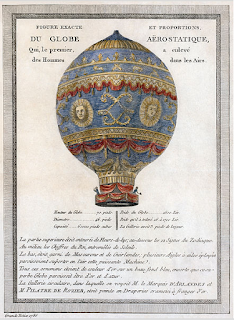 FIGURE EXACTE ET PROPORTIONS,
DU GLOBE AËROSTATIQUE,
Qui, le premier, a enlevé
des Hommes dans les Airs.
Hauteur du Globe 70 pieds
Diametre 46 pieds
Capacité 60000 pieds cubes
Poids du Globe
La Galerie avoit 3 pieds de largeur
La partie superieure étoit entourée de Fleurs-de-lys; au-dessous les 12 Signes du Zodiaque
Au milieu les Chiffres du Roi, entremêlés de Soleils
Le bas, étoit garni de Mascarons et de Guirlandes; plusieurs Aigles à ailes éployées
paroissoient supporter en l'air cette puissante Machine.
Tous ces ornemens étoient de couleur d'or sur un beau fond bleu, ensorte que ce
Globe paroissoit être d'or et d'azur.
La Gallerie circulaire, dans laquelle on voyoit M. le Marquis D'ARLANDES et
M. PILATRE DE ROZIER, étoit peinte en Draperies cramoisi à franges d'or.